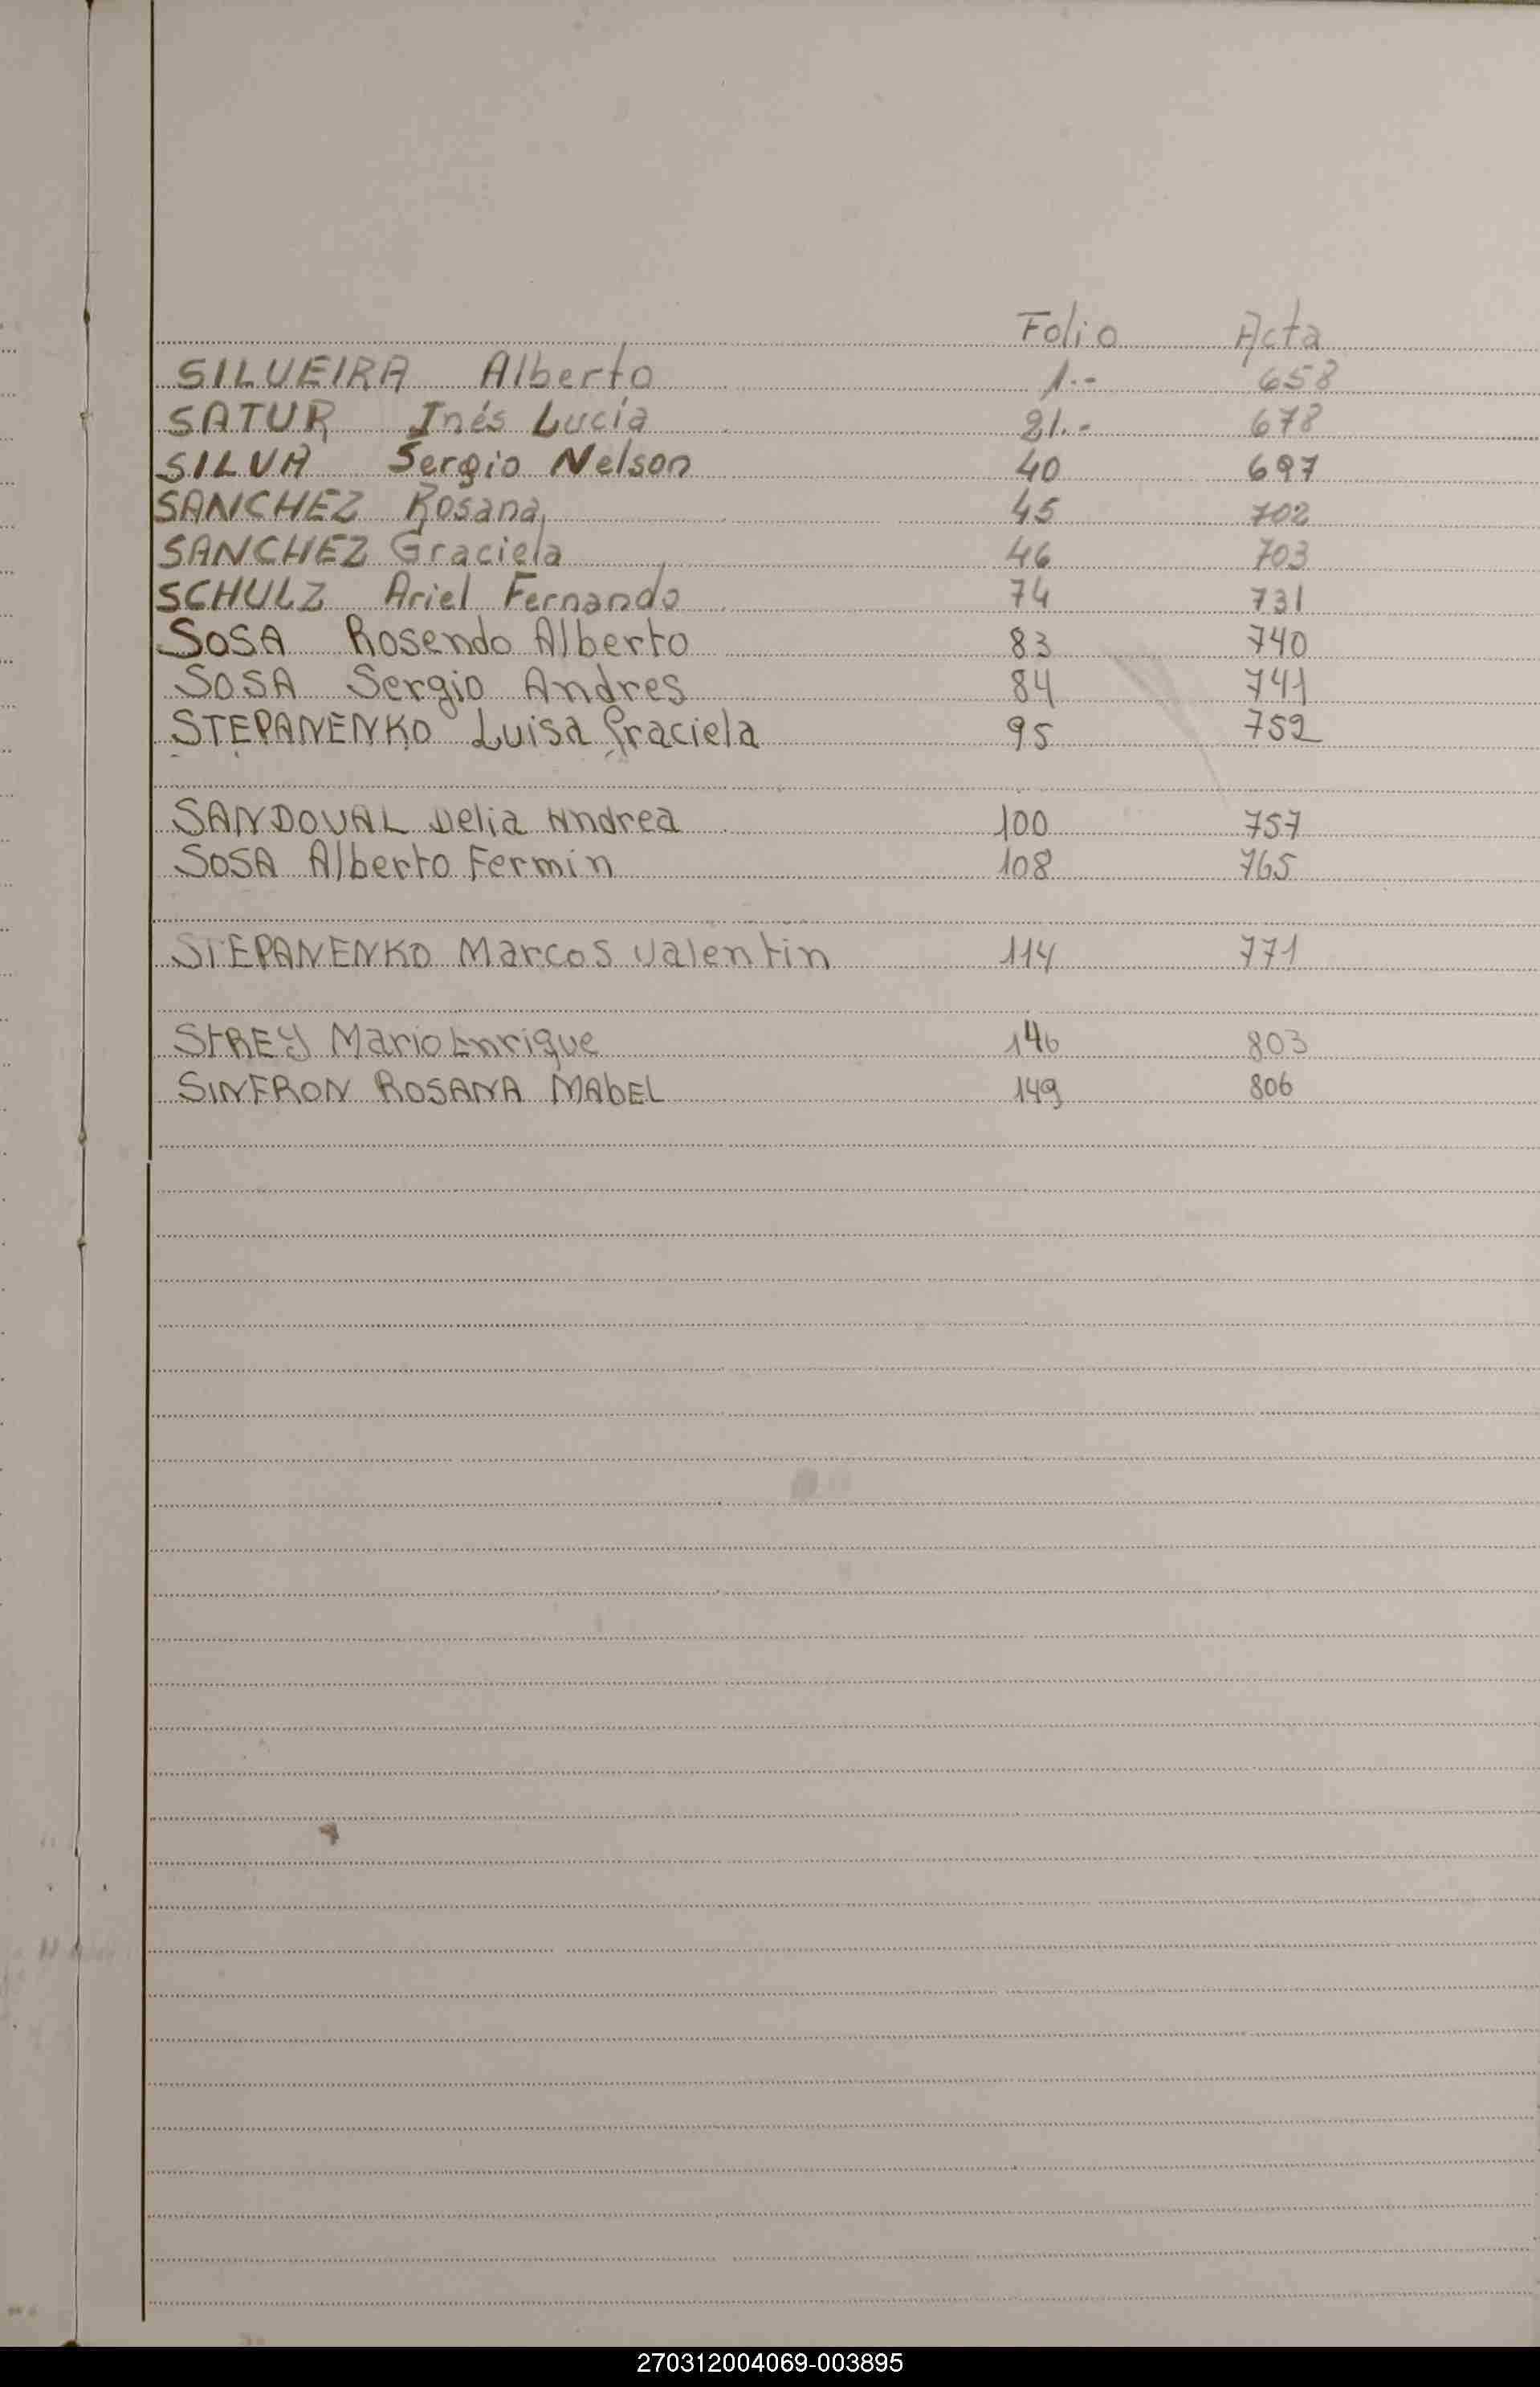 Folio Acta
SILVEIRA Alberto 1.- 658
SATUR Inés Lucía 21.- 678
SILVA Sergio Nelson 40 697
SANCHEZ Rosana 45 702
SANCHEZ Graciela 46 703
SCHULZ Ariel Fernando 74 731
SOSA Rosendo Alberto 83 740
SOSA Sergio Andres 84 741
STEPANENKO Luisa Graciela 95 752
SANDOVAL Delia Andrea 100 757
SOSA Alberto Fermin 108 765
STEPANENKO Marcos Valentin 114 771
StREY Mario Enrique 146 803
SINFRON ROSANA MAbEL 149 806
270312004069-003895